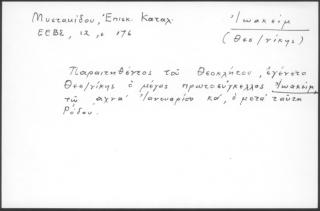 Μυστακίδου, Ἐπισκ. Καταλ.
ΕΕΒΣ, 12, σ 176
Ἰωακείμ
(Θεσ/νίκης)
Παραιτηθέντος τοῦ Θεοκλήτου, ἐγένετο
Θεσ/νίκης ὁ μέγας πρωτοσύγκελλος Ἰωακείμ,
τῷ αχνά Ἰανουαρίου κά, ὁ μετά ταῦτα
Ρόδου.